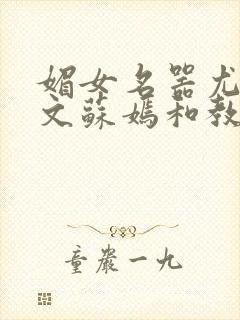 媚女名器尤
文蘇媽和教
童嚴一九